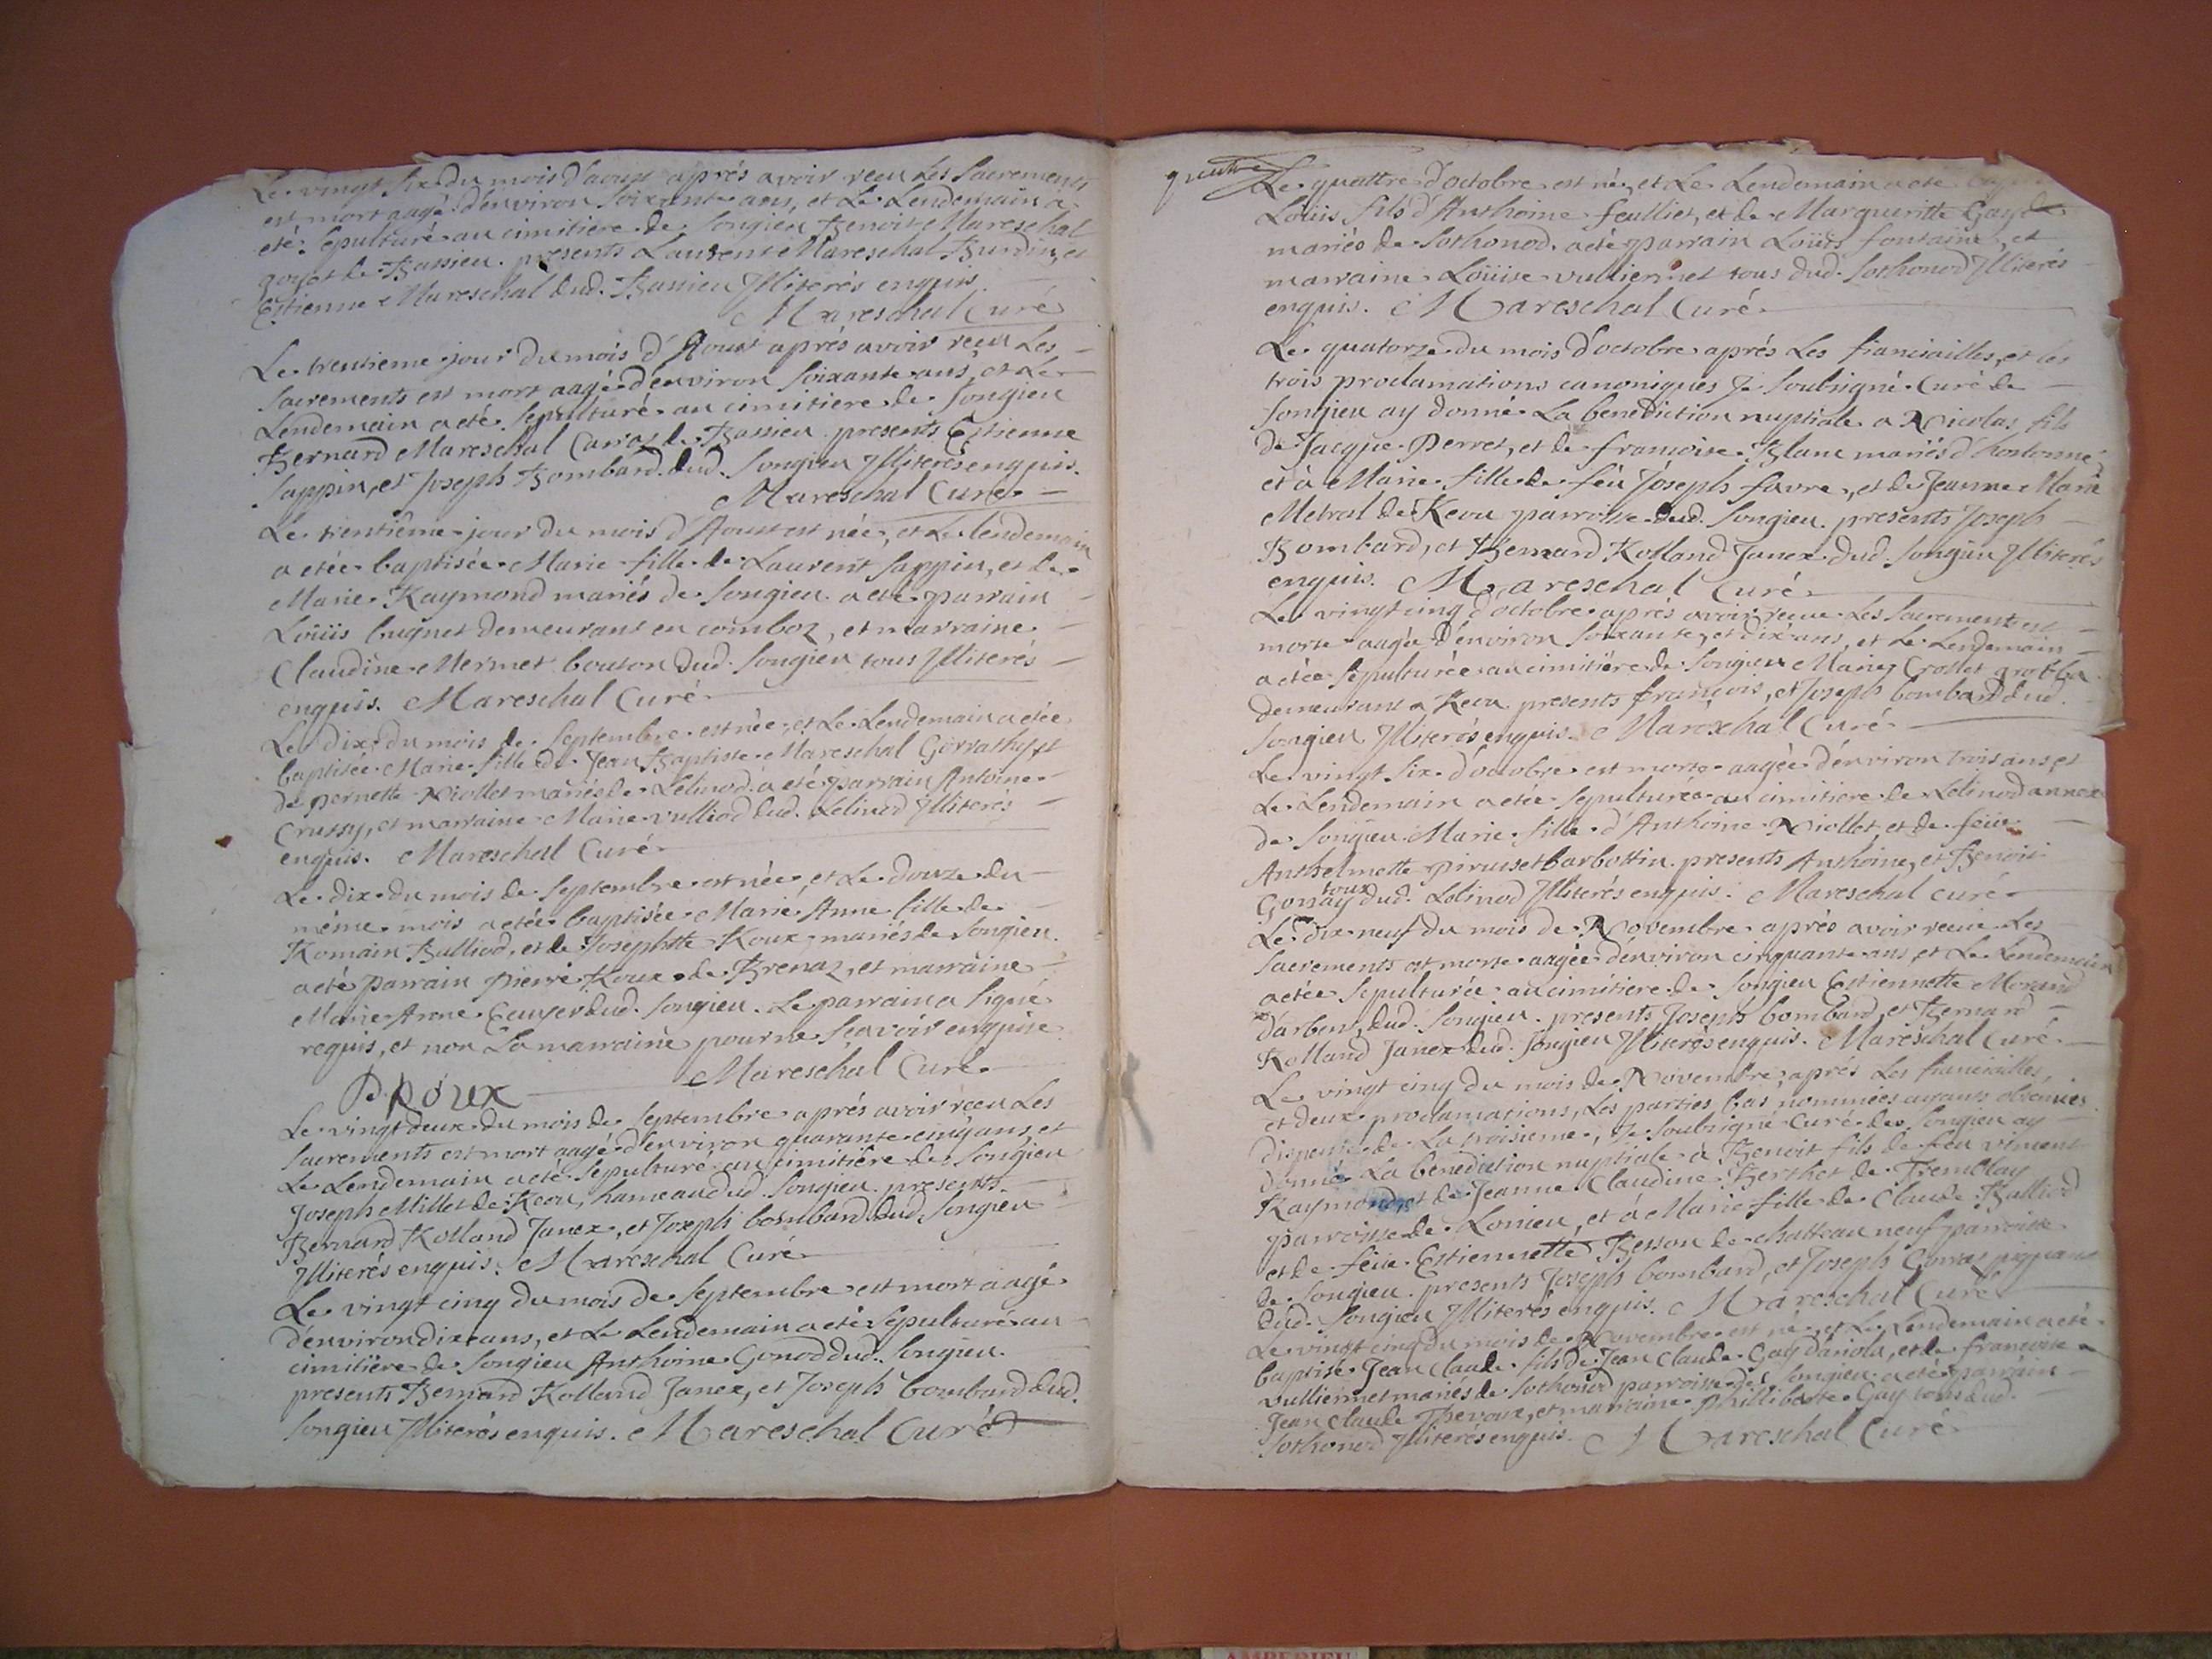 Le vingt six du mois d'aoust aprés avoir receu Les Sacrements
est mort aagé d'environ soixante ans, et Le Lendemain a
eté Sepulturé au cimitiere de Songieu Benoit Mareschal
goyet de Bassieu. presents Laurent Mareschal Burdin, et
Estienne Mareschal dud. Bassieu Illiterés enquis.
Mareschal Curé
Le trentieme jour du mois d'Aoust aprés avoir receu Les
Sacrements est mort aagé d'environ Soixante ans, et Le
Lendemain a eté Sepulturé au cimitiere de Songieu
Bernard Mareschal Carraz de Bassieu. presents Estienne
Sappin, et Joseph Bombard dud. Songieu Illiterés enquis.
Mareschal Curé
Le trentieme jour du mois d'Aoust est née, et Le lendemain
a etée baptisée Marie fille de Laurent Sappin, et de
Marie Raymond mariés de Songieu a eté parrain
Loüis bugnet demeurant en comboz, et marraine
Claudine Mermet bouton dud. Songieu tous Illiterés
enquis. Mareschal Curé
Le dix du mois de Septembre est née, et Le Lendemain a etée
baptisée Marie fille de Jean Baptiste Mareschal Gorrathy, et
de pernette Niollet mariés de Lelinod. a eté parrain Antoine
Crussy, et marraine Marie vulliod dud. Lelinod Illiterés
enquis. Mareschal Curé
Le dix du mois de Septembre est née, et Le douze du
même mois a etée baptisée Marie Anne fille de
Romain Balliod, et de Josephtte Roux mariés de Songieu.
a eté parrain pierre Roux de Brenaz, et marraine
Marie Anne dud. Songieu. Le parrain a signé
requis, et non La marraine pour ne sçavoir enquise
Mareschal Curé
P. ROUX
Le vingt deux du mois de Septembre aprés avoir receu Les
Sacrements est mort aagé d'environ quarante cinq ans, et
Le Lendemain a eté Sepulturé au cimitiere de Songieu
Joseph Millet de Reou, hameau dud. Songieu. presents
Bernard Rolland Janex, et Joseph bombard dud. Songieu
Illiterés enquis. Mareschal Curé
Le vingt cinq du mois de Septembre est mort aagé
d'environ dix ans, et Le Lendemain a eté Sepulturé au
cimitière de Songieu Anthoine Gonod dud. Songieu.
presents Bernard Rolland Janex, et Joseph bombard dud.
Songieu Illiterés enquis. Mareschal Curé
quattre
Le quattre d'octobre est né, et Le Lendemain a eté
Loüis fils d'Anthoine feulliet, et de Marguritte Gay
mariés de Sothonod. a eté parrain Loüis fontaine, et
marraine Loüise vulliermet tous dud. Sothonod Illiterés
enquis. Mareschal Curé
Le quatorze du mois d'octobre aprés Les fianciailles, et les
trois proclamations canoniques Je Soubsigné Curé de
Songieu ay donné La benediction nuptiale a Nicolas fils
de Jacque Perret, et de françoise Blanc mariés d'hostonne,
et à Marie fille de feü Joseph favre, et de Jeanne Marie
Metral de Reou parroisse dud. Songieu. presents Joseph
Bombard, et Bernard Rolland Janex dud. Songieu Illiterés
enquis. Mareschal Curé
Le vingt cinq d'octobre aprés avoir receue Les Sacrements est
morte aagée d'environ Soixante, et dix ans, et Le Lendemain
a etée Sepulturée au cimitiére de Songieu Marie Crollet
demeurant a Reou. presents françois, et Joseph bombard dud.
Songieu Illiterés enquis. Mareschal Curé
Le vingt Six d'octobre est morte aagée d'environ trois ans, et
Le Lendemain a etée Sepulturée au cimitiere de Lelinod annexe
de Songieu Marie fille d'Anthoine Niollet, et de feüe
Anthelmette barbottin. presents Anthoine, et Benoit
toux
Gonay dud. Lelinod Illiterés enquis. Mareschal Curé
Le dix neuf du mois de Novembre aprés avoir receue Les
Sacrements est morte aagée d'environ cinquante ans et Le Lendemain
a etée Sepulturée au cimitiere de Songieu Estiennette Morand
d'arbent, dud. Songieu. presents Joseph bombard, et Bernard
Rolland Janex dud. Songieu Illiterés enquis. Mareschal Curé
Le vingt cinq du mois de Novembre, aprés Les fianciailles,
et deux proclamations, Les parties bas nommées ayants obtenües
dispense de La troisieme, Je Soubsigné Curé de Songieu ay
donné La benediction nuptiale à Benoit fils de feu vincent
Raymond, et de Jeanne Claudine Berthet de Tremblay
parroisse de Lonieu, et à Marie fille de Claude Balliod
et de feüe Estiennette Besson de chatteau neuf parroisse
de Songieu. presents Joseph bombard, et Joseph Gorraz
dud. Songieu Illiterés enquis. Mareschal Curé
Le vingt cinq du mois de Novembre est né, et Le Lendemain a eté
baptisé Jean Claude fils de Jean Claude Gay daniola, et de françoise
vulliermet mariés de Sothonod parroisse de Songieu. a eté parrain
Jean Claude Thevoux, et marraine Phillibette Gay tous dud.
Sothonod Illiterés enquis. Mareschal Curé